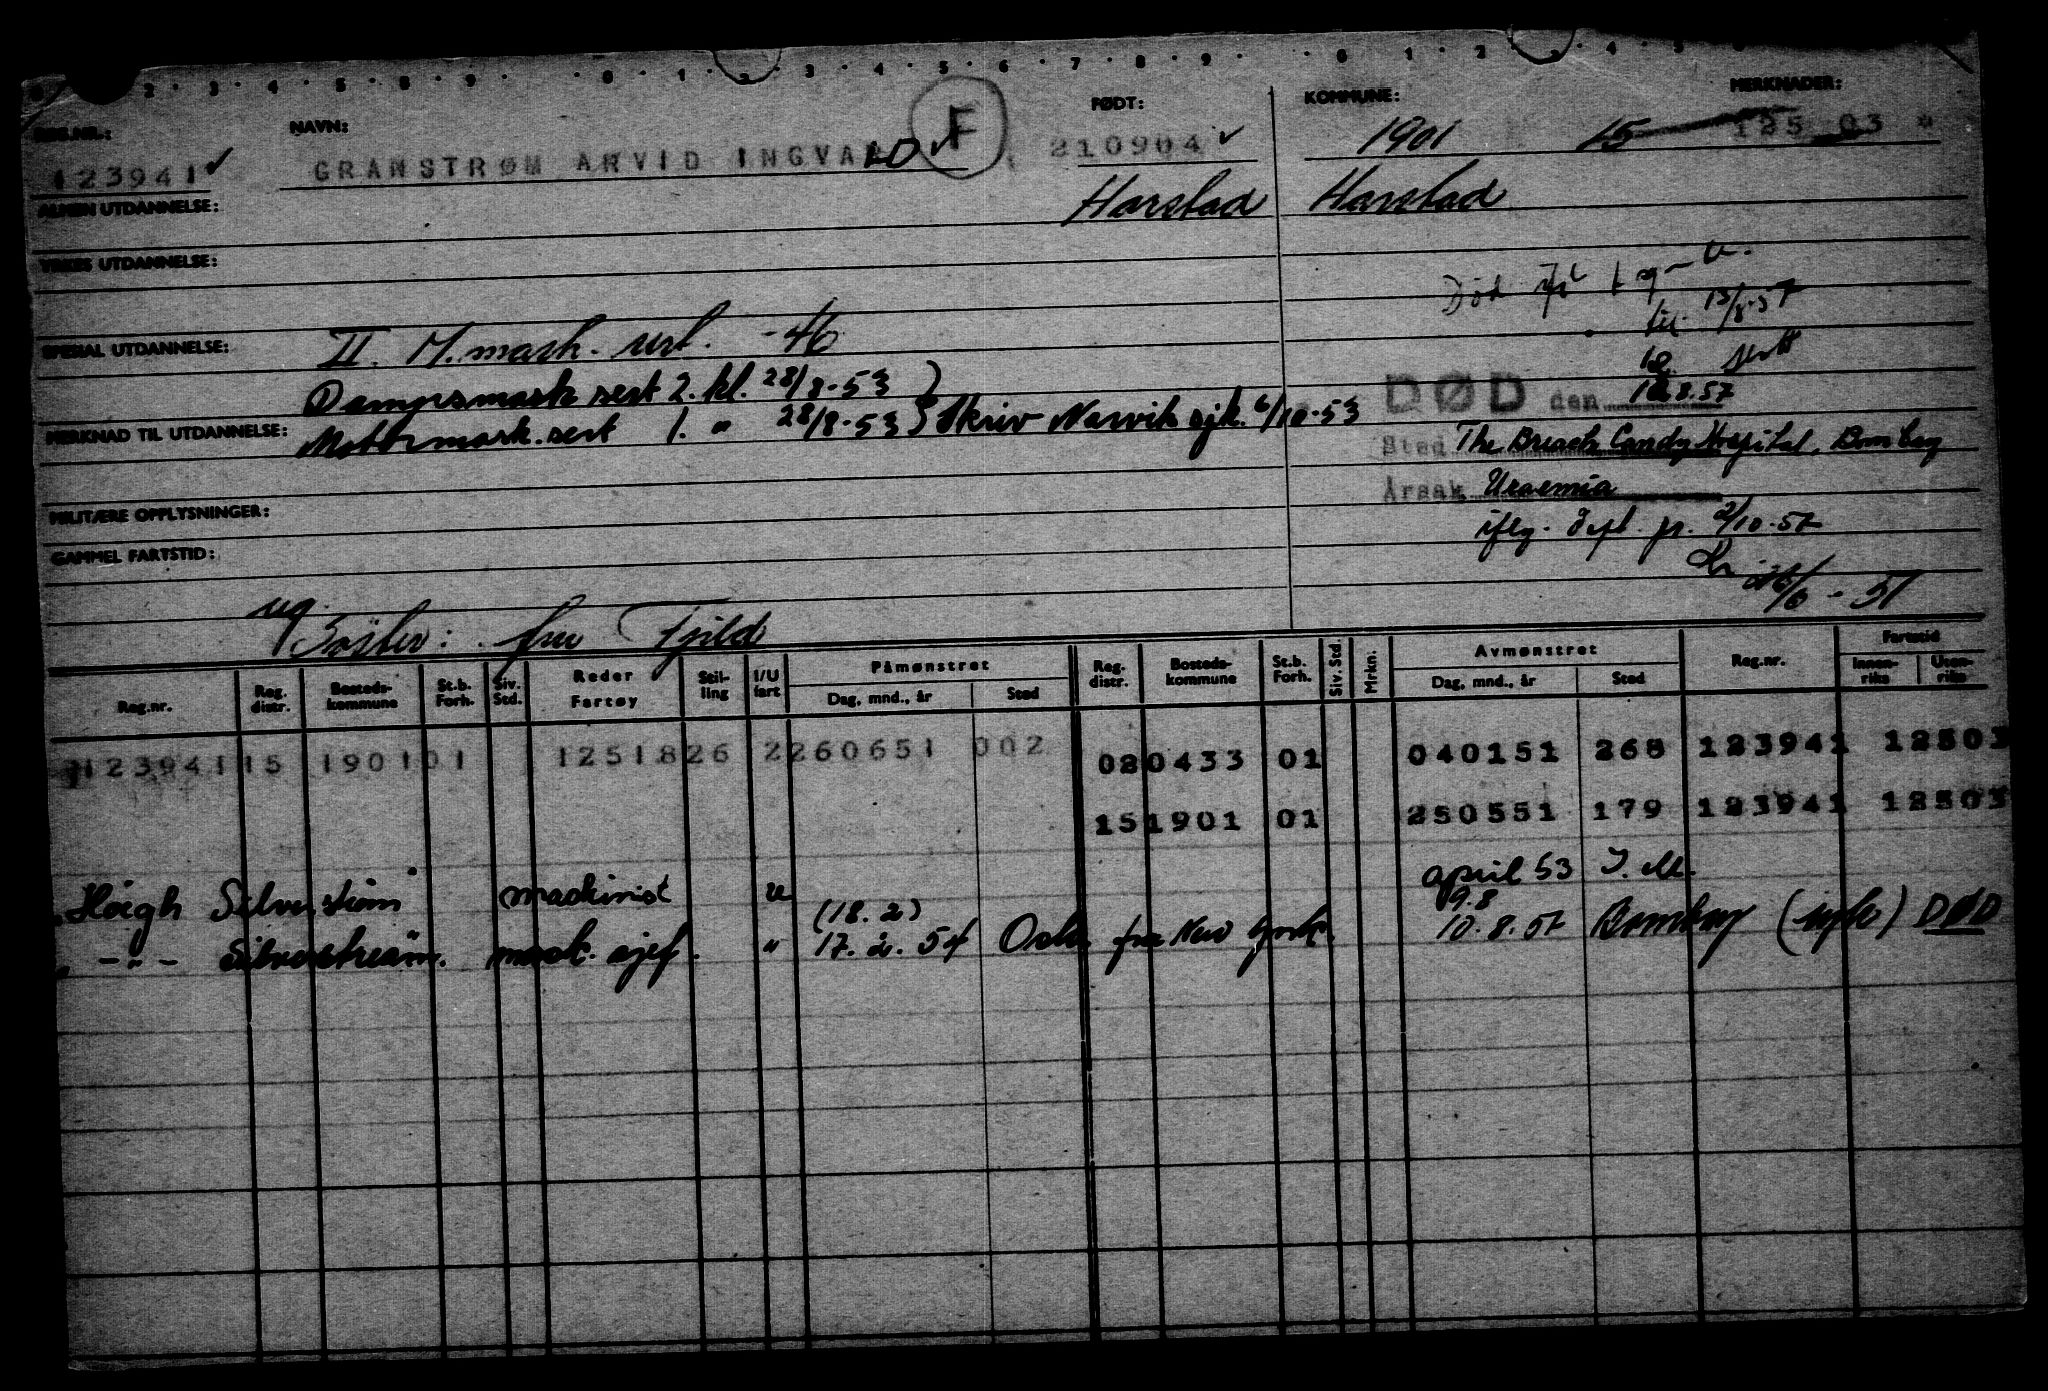 REG.NR.: NAVN: FØDT: KOMMUNE: MERKNADER:
123941 ✓ GRANSTRØM ARVID INGVALD ✓ F 210904 ✓ 1901 15 125 03 "
Harstad Harstad
ALMEN UTDANNELSE:
YRKES UTDANNELSE:
SPESIAL UTDANNELSE: II. M. mask. utd. -46
Dampsmask sert 2. kl. 28/8-53
MERKNAD TIL UTDANNELSE: Motormask.sert 1. " 28/8-53 } Skriv Narvik sjk. 6/10-53
Død
13/8-57
DØD den 10.8.57
Sted The Breach Candy Hospital, Bombay
Årsak Uraemia
iflg. dept. pr. 2/10-57
MILITÆRE OPPLYSNINGER:
GAMMEL FARTSTID:
Søster: fru Fjeld
Reg.nr. Reg. distr. Bosteds-kommune St.b. Forh. Siv. Std. Reder Fartøy Stil-ling I/U fart Påmønstret Dag, mnd., år Sted Reg. distr. Bosteds-kommune St.b. Forh. Siv. Std. Mrkn. Avmønstret Dag, mnd., år Sted Reg.nr. Fartstid Innen-riks Uten-riks
123941 15 1901 01 1251826 2 260651 002 02 0433 01 040151 268 123941 12503
15 1901 01 250551 179 123941 12503
Høegh Silverstrøm maskinist u april 53 I. M.
" - " - Silverstream. mask. sjef. " (18.2) 17. 2. 54 Oslo fra New York. 9.8 10.8.57 Bombay DØD